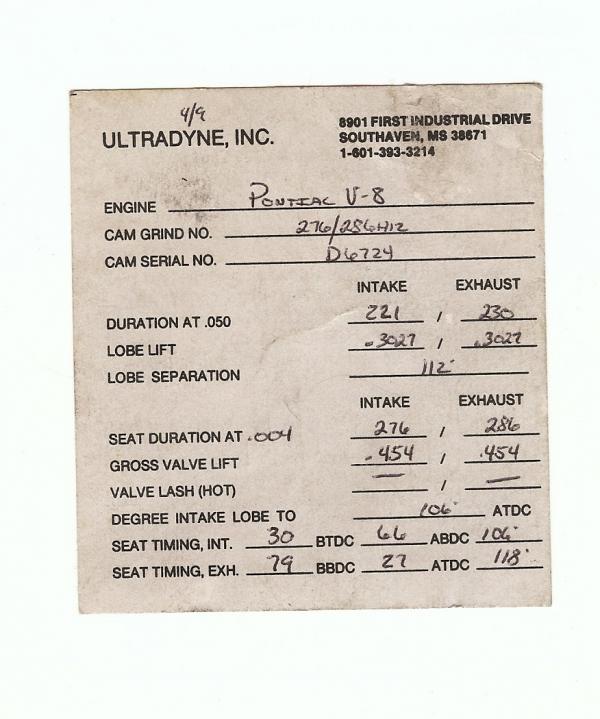 4/9
ULTRADYNE, INC.
8901 FIRST INDUSTRIAL DRIVE
SOUTHAVEN, MS 38671
1-601-393-3214
ENGINE PONTIAC V-8
CAM GRIND NO. 276/286H12
CAM SERIAL NO. D6724
INTAKE EXHAUST
DURATION AT .050 221 / 230
LOBE LIFT .3027 / .3027
LOBE SEPARATION 112°
INTAKE EXHAUST
SEAT DURATION AT .004 276 / 286
GROSS VALVE LIFT .454 / .454
VALVE LASH (HOT) — / —
DEGREE INTAKE LOBE TO 106° ATDC
SEAT TIMING, INT. 30 BTDC 66 ABDC 106°
SEAT TIMING, EXH. 79 BBDC 27 ATDC 118°